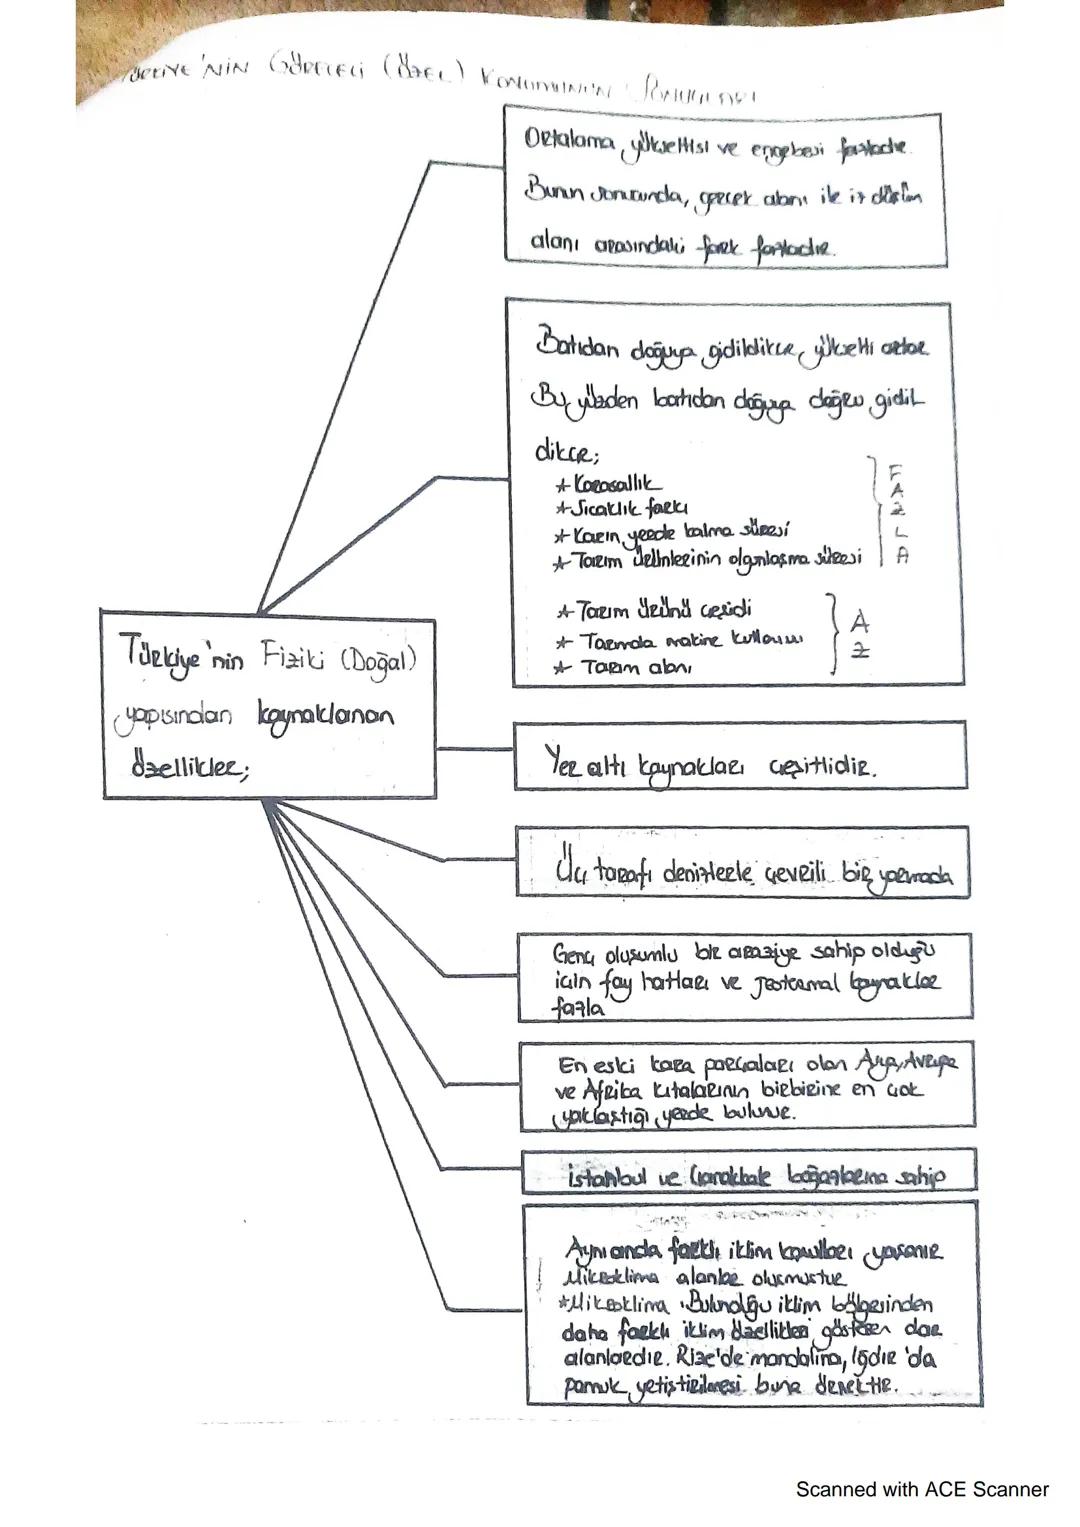 TÜRKİYE'NİN GÖRECELİ (ÖZEL) KONUMUNUN SONUÇLARI
Ortalama yükseltisi ve engebesi fazladır.
Bunun sonucunda, gerçek alanı ile iz düşüm
alanı arasındaki fark fazladır.
Batıdan doğuya gidildikçe, yükselti artar
Bu yüzden batıdan doğuya doğru gidil
dikçe;
* Karasallık
* Sıcaklık farkı
* Karın yerde kalma süresi
* Tarım ürünlerinin olgunlaşma süresi
FAZLA
* Tarım ürünü çeşidi
* Tarımda makine kullanımı
* Tarım alanı
AZ
Türkiye'nin Fiziki (Doğal)
yapısından kaynaklanan
özellikler;
Yer altı kaynakları çeşitlidir.
Üç tarafı denizlerle çevrili bir yarımada
Genç oluşumlu bir araziye sahip olduğu
için fay hatları ve jeotermal kaynaklar
fazla
En eski kara parçaları olan Asya, Avrupa
ve Afrika kıtalarının birbirine en çok
yaklaştığı yerde bulunur.
İstanbul ve Çanakkale boğazlarına sahip
Aynı anda farklı iklim koşulları yaşanır
Mikroklima alanlar oluşmuştur
*Mikroklima: Bulunduğu iklim bölgesinden
daha farklı iklim özellikleri gösteren dar
alanlardır. Rize'de mandalina, Iğdır'da
pamuk yetiştirilmesi buna örnektir.
Scanned with ACE Scanner